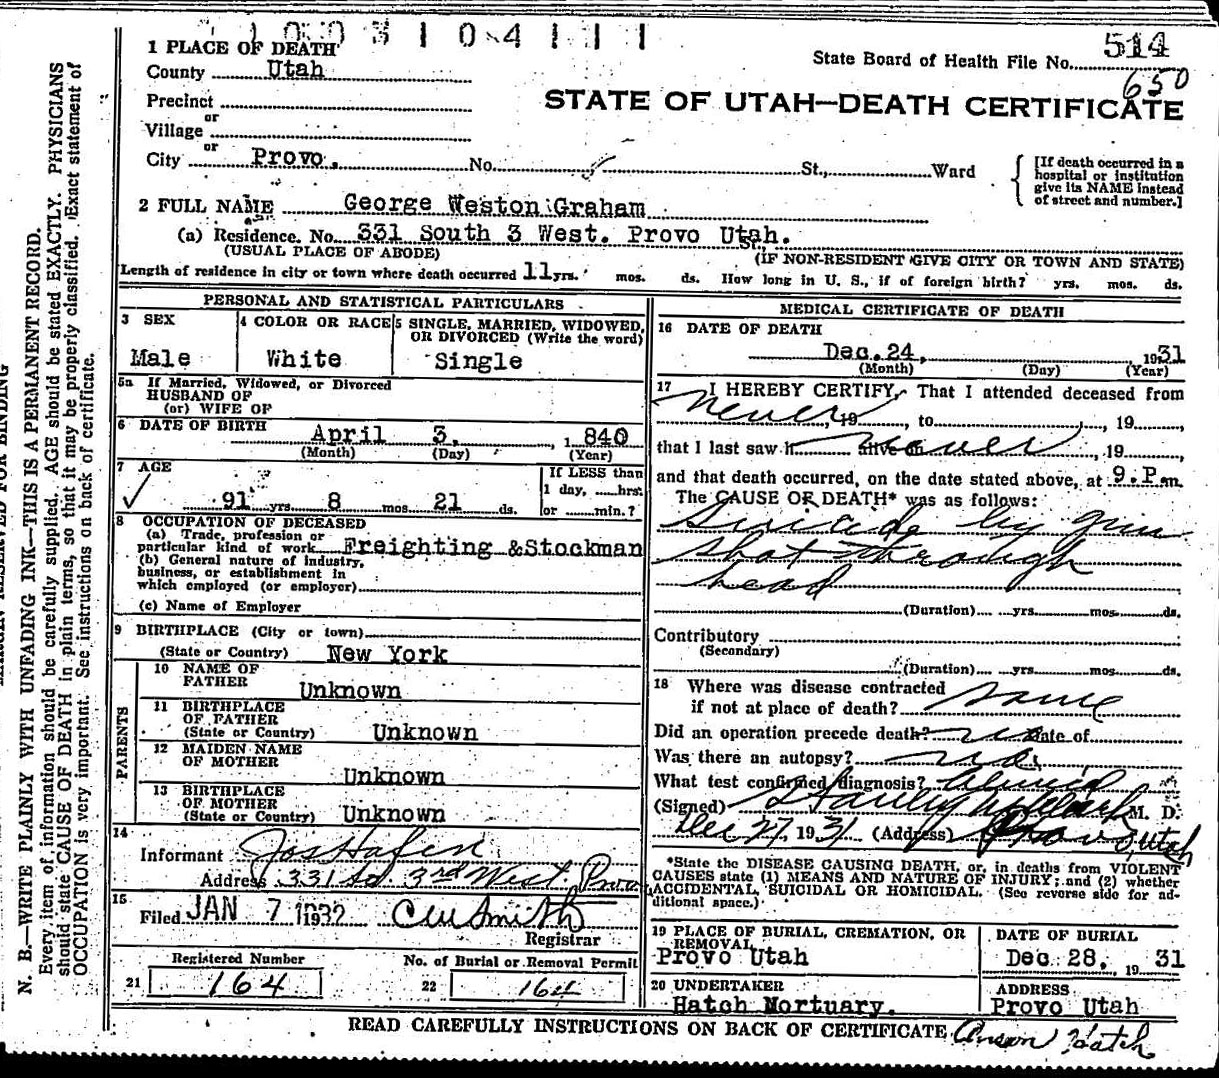 1003104111
1 PLACE OF DEATH
State Board of Health File No. 514
650
County Utah
STATE OF UTAH—DEATH CERTIFICATE
Precinct
or
Village
or
City Provo. No. St., Ward
[If death occurred in a hospital or institution give its NAME instead of street and number.]
2 FULL NAME George Weston Graham
(a) Residence. No. 331 South 3 West. Provo Utah.
St.
(USUAL PLACE OF ABODE) (IF NON-RESIDENT GIVE CITY OR TOWN AND STATE)
Length of residence in city or town where death occurred 11 yrs. mos. ds. How long in U. S., if of foreign birth? yrs. mos. ds.
PERSONAL AND STATISTICAL PARTICULARS
3 SEX
Male
4 COLOR OR RACE
White
5 SINGLE, MARRIED, WIDOWED,
OR DIVORCED (Write the word)
Single
5a If Married, Widowed, or Divorced
HUSBAND OF
(or) WIFE OF
6 DATE OF BIRTH April 3, 1840
(Month) (Day) (Year)
7 AGE
91 yrs 8 mos 21 ds.
If LESS than
1 day, hrs.
or min.?
8 OCCUPATION OF DECEASED
(a) Trade, profession or
particular kind of work Freighting &Stockman
(b) General nature of industry,
business, or establishment in
which employed (or employer)
(c) Name of Employer
9 BIRTHPLACE (City or town)
(State or Country) New York
PARENTS
10 NAME OF
FATHER Unknown
11 BIRTHPLACE
OF FATHER
(State or Country) Unknown
12 MAIDEN NAME
OF MOTHER
Unknown
13 BIRTHPLACE
OF MOTHER
(State or Country) Unknown
14
Informant Jos Hafen
Address 331 So 3rd West Provo
15
Filed JAN 7 1932
Registrar
Registered Number
21 164
No. of Burial or Removal Permit
22 164
MEDICAL CERTIFICATE OF DEATH
16 DATE OF DEATH
Dec. 24, 1931
(Month) (Day) (Year)
17 I HEREBY CERTIFY, That I attended deceased from
never, 19 , to , 19 ,
that I last saw h alive on never, 19 ,
and that death occurred, on the date stated above, at 9.P.m.
The CAUSE OF DEATH* was as follows:
Suicide by gun
shot through
head
(Duration) yrs. mos. ds.
Contributory
(Secondary)
(Duration) yrs. mos. ds.
18 Where was disease contracted
if not at place of death? same
Did an operation precede death? no Date of
Was there an autopsy? no
What test confirmed diagnosis? clinical
(Signed) Stanley M. D.
Dec 27 1931 (Address) Provo, Utah
*State the DISEASE CAUSING DEATH, or, in deaths from VIOLENT
CAUSES state (1) MEANS AND NATURE OF INJURY; and (2) whether
ACCIDENTAL, SUICIDAL OR HOMICIDAL. (See reverse side for ad-
ditional space.)
19 PLACE OF BURIAL, CREMATION, OR
REMOVAL
Provo Utah
DATE OF BURIAL
Dec. 28, 1931
20 UNDERTAKER
Hatch Mortuary.
ADDRESS
Provo Utah
READ CAREFULLY INSTRUCTIONS ON BACK OF CERTIFICATE Anson Hatch
RESERVED FOR BINDING
N. B.—WRITE PLAINLY WITH UNFADING INK—THIS IS A PERMANENT RECORD.
Every item of information should be carefully supplied. AGE should be stated EXACTLY. PHYSICIANS
should state CAUSE OF DEATH in plain terms, so that it may be properly classified. Exact statement of
OCCUPATION is very important. See instructions on back of certificate.